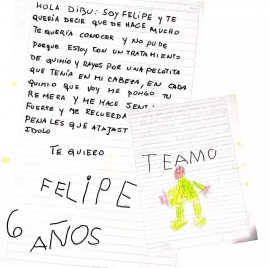 HOLA DIBU: SOY FELIPE Y TE
QUERÍA DECIR QUE DE HACE MUCHO
TE QUERÍA CONOCER Y NO PUDE
PORQUE ESTOY CON UN TRATAMIENTO
DE QUIMIO Y RAYOS POR UNA PELOTITA
QUE TENÍA EN MI CABEZA, EN CADA
QUIMIO QUE VOY ME PONGO TU
REMERA Y ME HACE SENTI
FUERTE Y ME RECUERDA
PENALES QUE ATAJAST
IDOLO
TE QUIERO
FELIPE
6 AÑOS
TEAMO